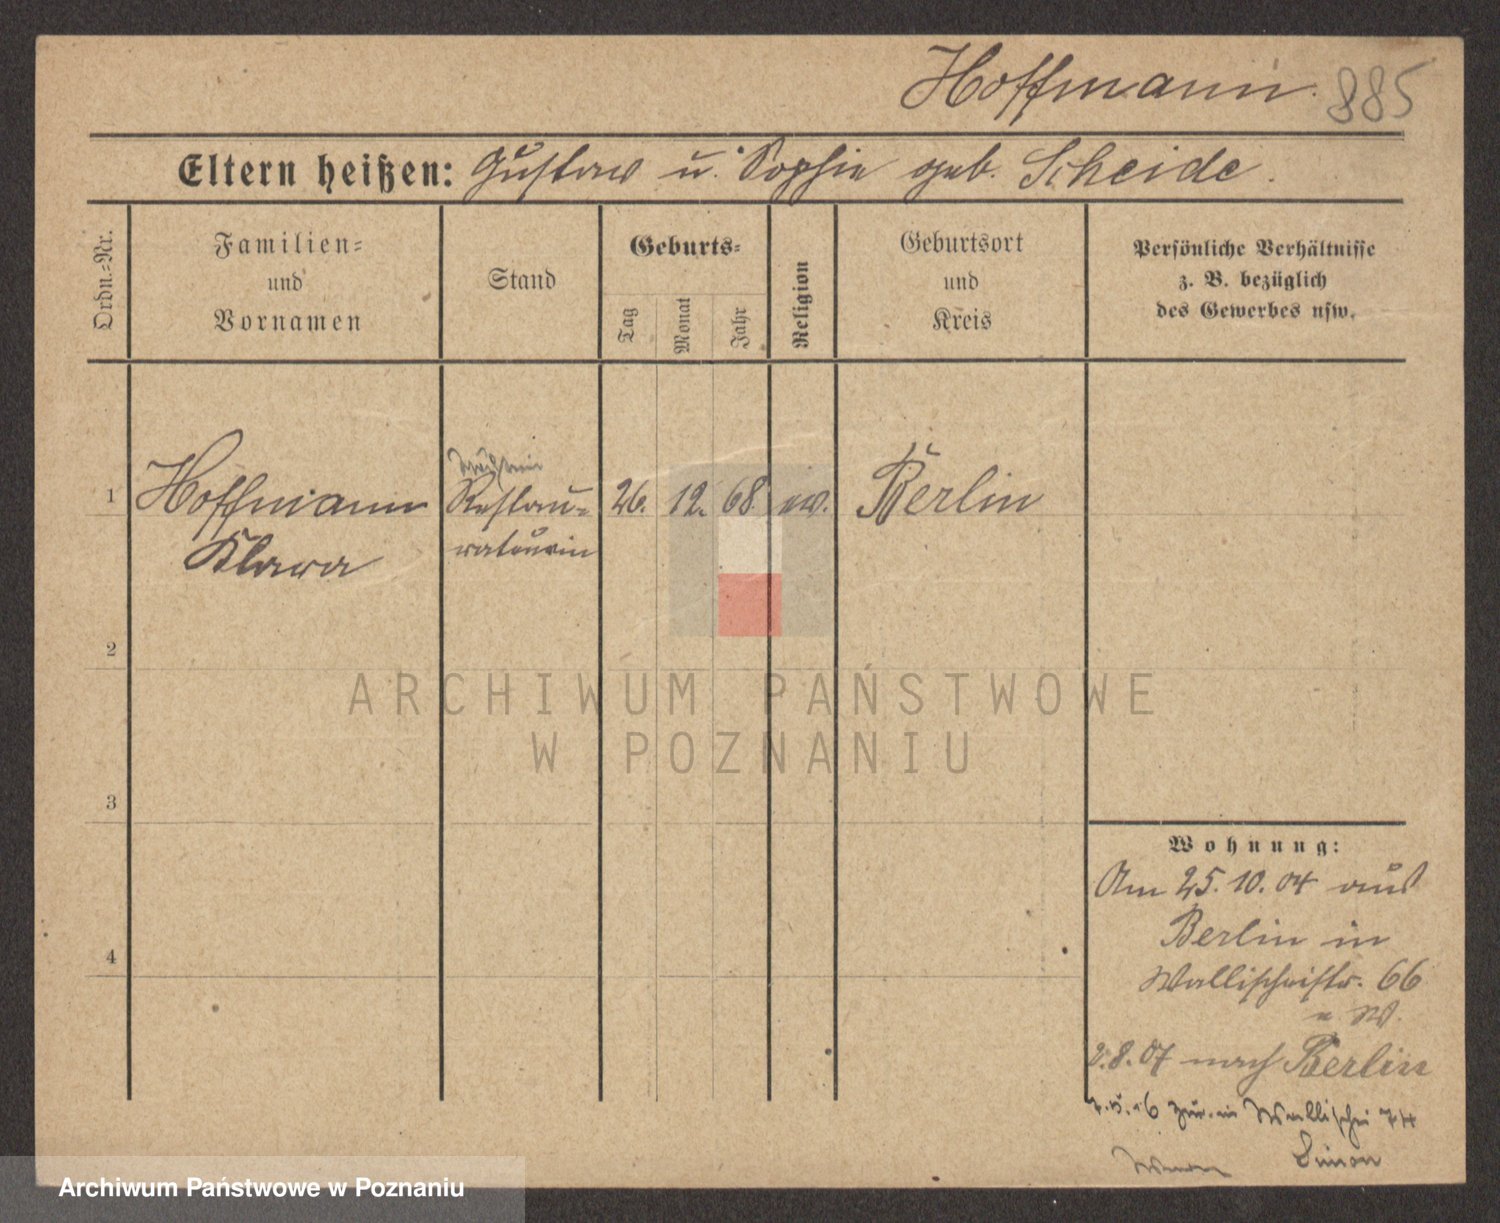 Hoffmann. 885
Eltern heißen: Gustav u. Sophie geb. Scheide.
Ordn.=Nr.
Familien=
und
Vornamen
Stand
Geburts=
Tag
Monat
Jahr
Religion
Geburtsort
und
Kreis
Persönliche Verhältnisse
z. B. bezüglich
des Gewerbes usw.
1 Hoffmann Restau= 26. 12. 68 ev. Berlin
Klara rateurin
2
3
4
Wohnung:
Am 25. 10. 04 aus
Berlin in
Wallischeistr. 66
2.8.07 nach Berlin
Wallischei 74
Simon
ARCHIWUM PAŃSTWOWE
W POZNANIU
Archiwum Państwowe w Poznaniu